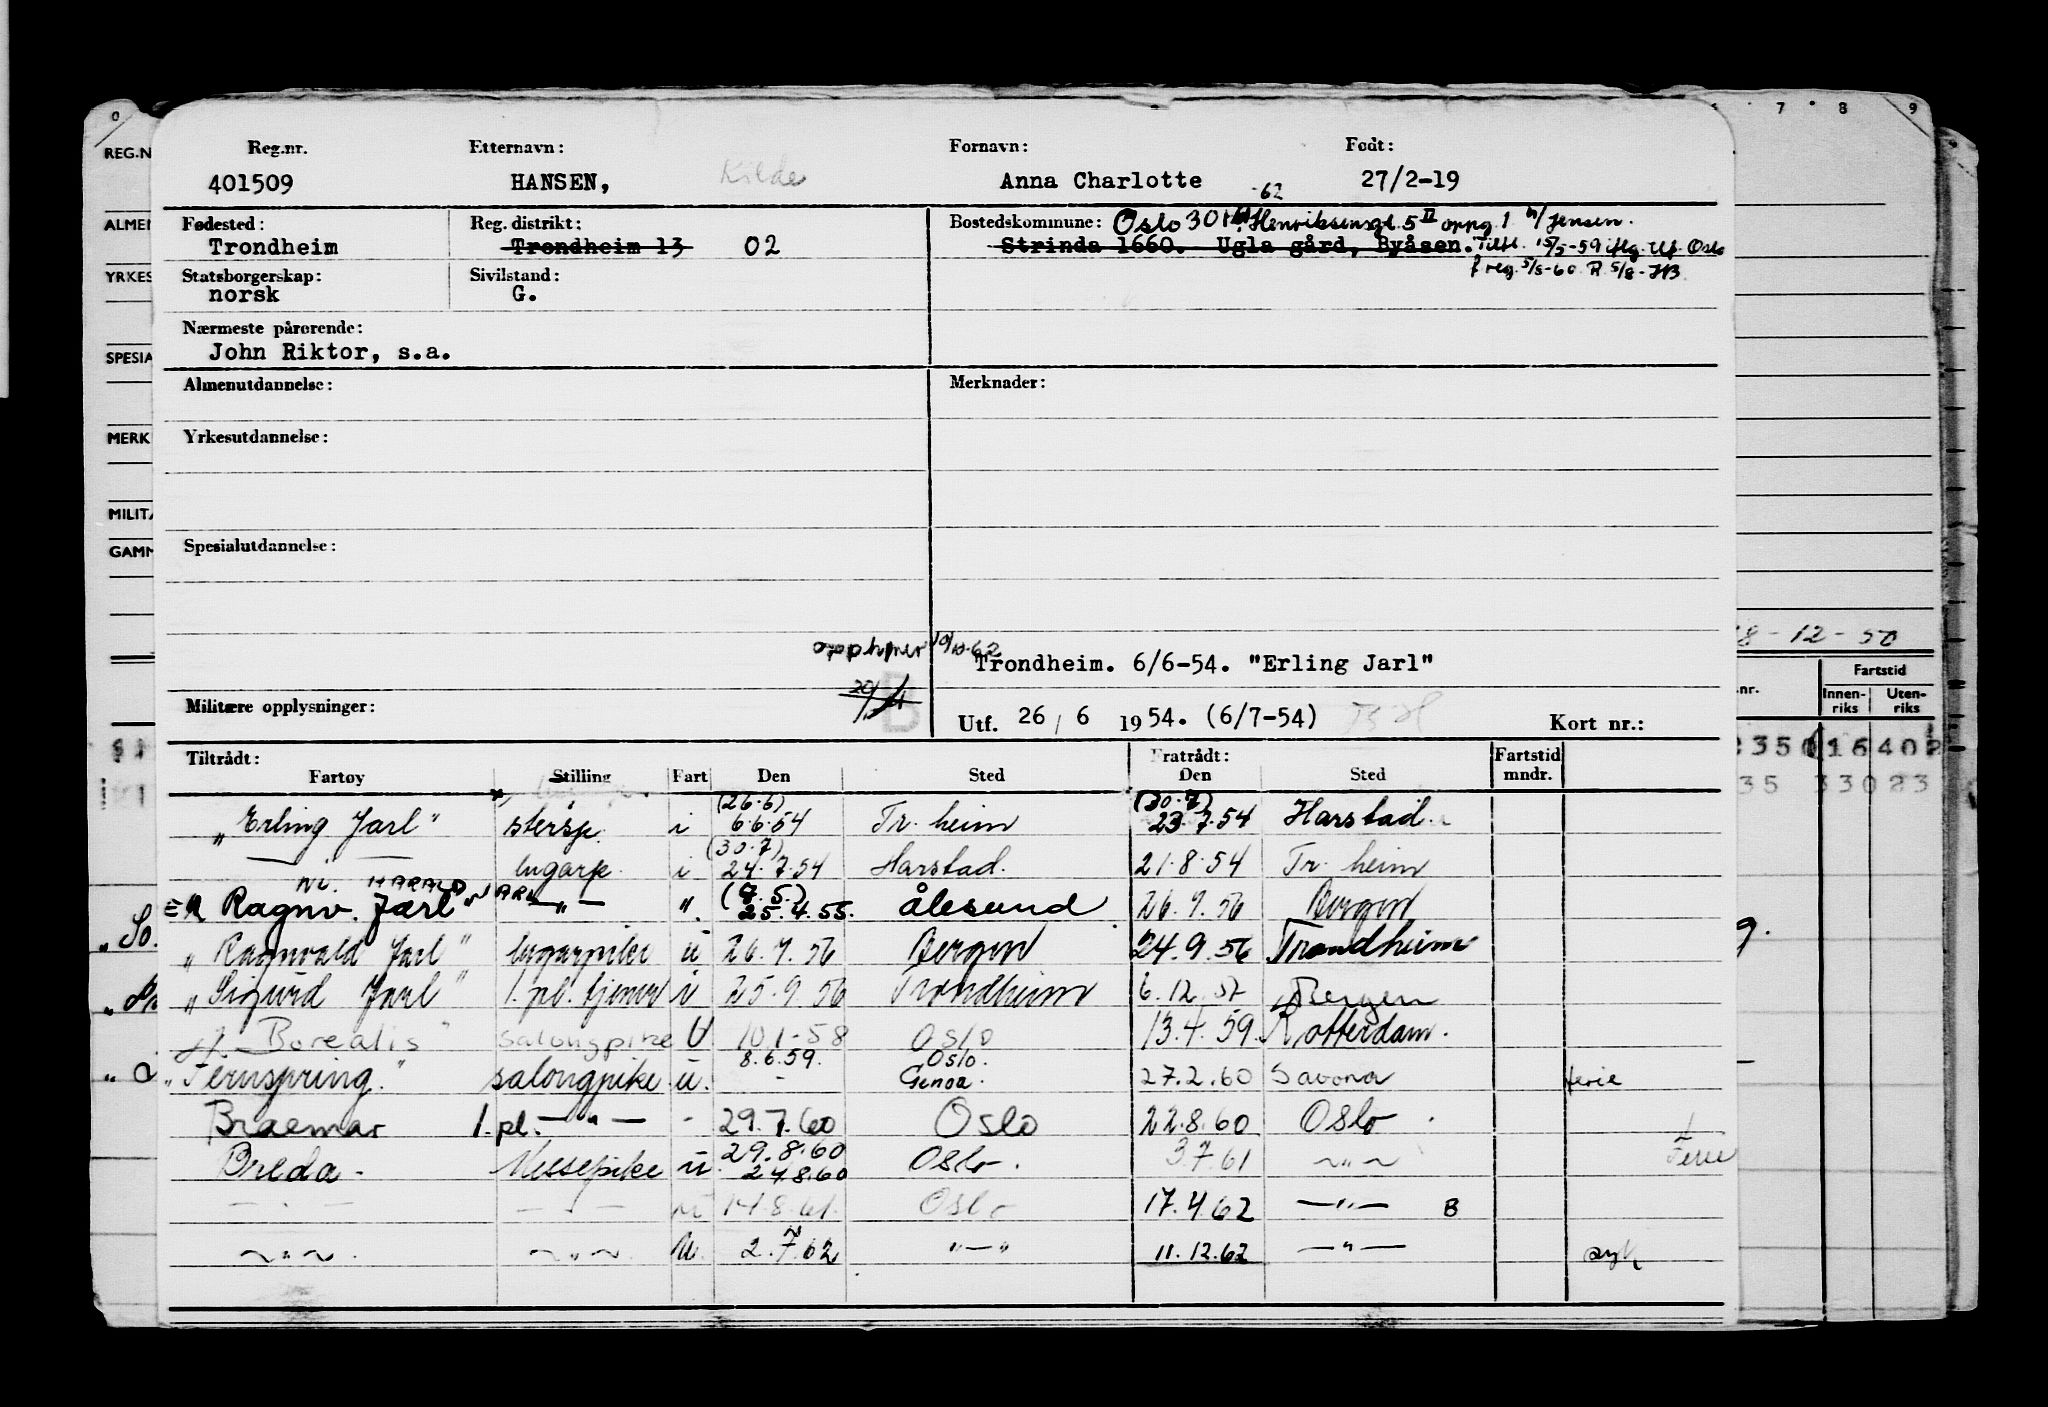 Reg.nr. Etternavn: Fornavn: Født:
401509 HANSEN, Kilde Anna Charlotte 27/2-19
-62
Fødested: Reg. distrikt: Bostedskommune: Oslo 301 Henriksensgt. 5 II oppg. 1 v/ Jensen.
Trondheim Trondheim 13 02 Strinda 1660. Ugla gård, Byåsen. Tilfl. 15/5-59 iflg. Uf. Oslo
f reg. 5/5-60 R 5/8-HB
Statsborgerskap: Sivilstand:
norsk G.
Nærmeste pårørende:
John Riktor, s.a.
Almenutdannelse: Merknader:
Yrkesutdannelse:
Spesialutdannelse:
Trondheim. 6/6-54. "Erling Jarl"
Militære opplysninger: B Utf. 26/6 1954. (6/7-54) Kort nr.:
Tiltrådt: Fratrådt: Fartstid
Fartøy Stilling Fart Den Sted Den Sted mndr.
(26.6) (30.7)
"Erling Jarl" i 6.6.54 Tr. heim 23.7.54 Harstad.
(30.7)
— lugarp. i 24.7.54 Harstad. 21.8.54 Tr. heim
HARALD JARL
Ragnv. Jarl" —"— ". 25.4.55. Ålesund 26.7.56 Bergen
"Ragnvald Jarl" lugarpike u 26.7.56 Bergen 24.9.56 Trondheim
"Sigurd Jarl" 1. pl. tjener i 25.9.56 Trondheim 6.12.57 Bergen
Borealis" salongpike U 10.1-58 Oslo 13.4.59 Rotterdam.
8.6.59. Oslo.
"Fernspring." salongpike u. - Genoa. 27.2.60 Savona ferie
Braemar 1. pl. —"— - 29.7.60 Oslo 22.8.60 Oslo
29.8.60
Breda - Messepike u. 27.8.60 Oslo. 3.7.61 —"— Ferie
— " — — " — 14.8.61. Oslo 17.4.62 —"— B
—"—. —"—. u. 2.7.62 "—" 11.12.62 —"— syk
REG.N
ALMEN
YRKES
SPESIA
MERK
MILITA
GAMM
0
7 8 9
8-12-50
Fartstid
.nr. Innen-riks Uten-riks